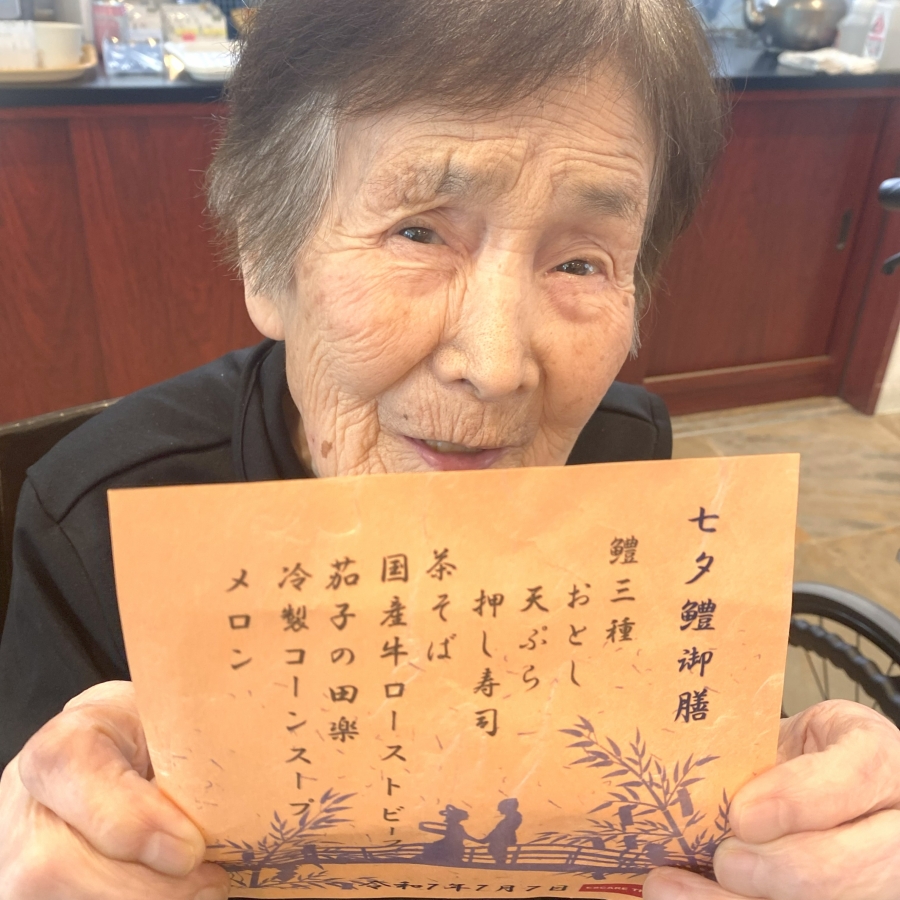 七夕鱧御膳
鱧三種
おとし
天ぷら
押し寿司
茶そば
国産牛ローストビーフ
茄子の田楽
冷製コーンストプ
メロン
令和7年7月7日